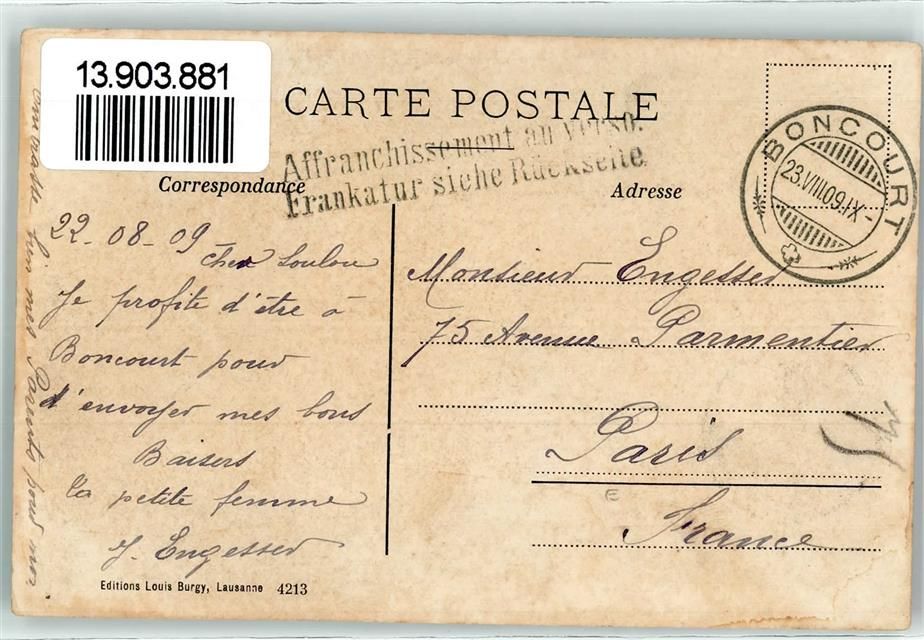 13.903.881
CARTE POSTALE
Affranchissement au verso.
Frankatur siehe Rückseite
Correspondance
Adresse
BONCOURT
23.VIII.09.IX-
22-08-09
Cher Loulou
Je profite d'être à
Boncourt pour
d'envoyer mes bons
Baisers
ta petite femme
J. Engesser
Monsieur Engesser
75 Avenue Parmentier
Paris
France
bien mes Parents pour moi
Editions Louis Burgy, Lausanne 4213
E